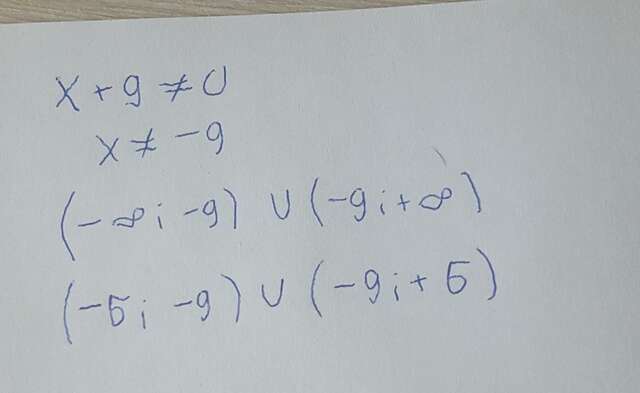 x + 9 ≠ 0
x ≠ -9
(-∞; -9) ∪ (-9; +∞)
(-5; -9) ∪ (-9; +5)